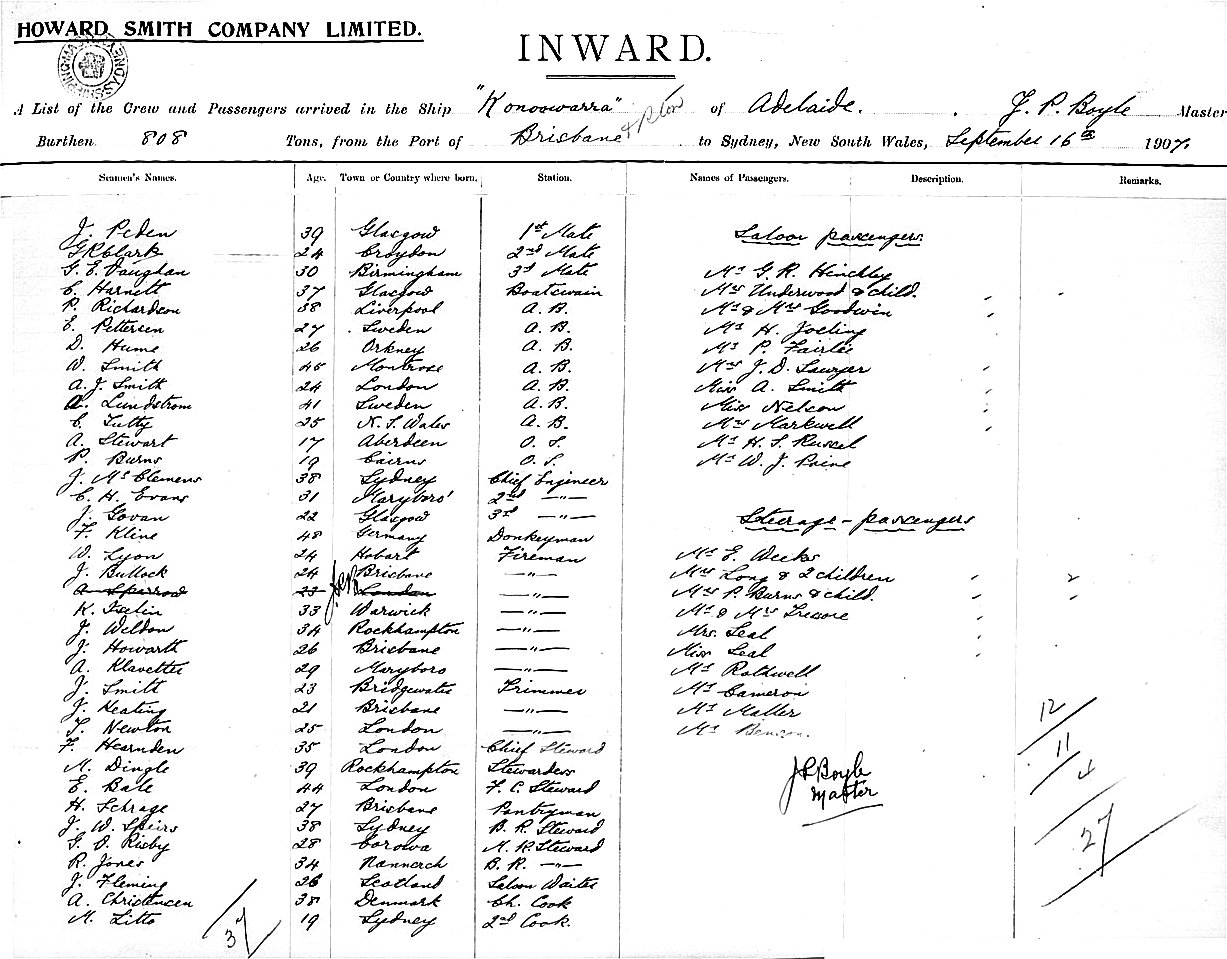 HOWARD SMITH COMPANY LIMITED.
INWARD.
A List of the Crew and Passengers arrived in the Ship "Konoowarra" of Adelaide. J. P. Boyle Master
Burthen 808 Tons, from the Port of Brisbane to Sydney, New South Wales, September 16th 1907.
Seamen's Names. Age. Town or Country where born. Station. Names of Passengers. Description. Remarks.
J. Peden 39 Glasgow 1st Mate Saloon passengers
G R Clark 24 Croydon 2nd Mate
G. E. Vaughan 30 Birmingham 3d Mate Mr G. R. Hinckley
C. Harnett 37 Glasgow Boatswain Mrs Underwood & child.
P. Richardson 38 Liverpool A. B. Mr & Mrs Goodwin
E. Pettersen 27 Sweden A. B. Mr H. Joeling
D. Hume 26 Orkney A. B. Mr P. Fairlie
W. Smith 45 Montrose A. B. Mrs J. D. Sawyer
A. J. Smith 24 London A. B. Miss A. Smith
A. Lundstrom 41 Sweden A. B. Miss Nelson
C. Tutty 25 N. S. Wales A. B. Mrs Markwell
A. Stewart 17 Aberdeen O. S. Mr H. S. Russel
P. Burns 19 Cairns O. S. Mr W. J. Paine
J. McClemens 38 Sydney Chief Engineer
C. H. Evans 31 Maryboro' 2nd —"—
J. Govan 22 Glasgow 3rd —"— Steerage - passengers
F. Kline 48 Germany Donkeyman
W. Lyon 24 Hobart Fireman Mr E. Weeks
J. Bullock 24 Brisbane —"— Mrs Long & 2 children 2
A. Sparrow 23 London —"— Mrs P. Burns & child.
K. Iselin 33 Warwick —"— Mr & Mrs Tresore
J. Weldon 34 Rockhampton —"— Mrs. Seal
J. Howarth 26 Brisbane —"— Miss Seal
A. Klavetter 29 Maryboro —"— Mr Rothwell
J. Smith 23 Bridgewater Trimmer Mr Cameron
J. Keating 21 Brisbane —"— Mr Maller
T. Newton 25 London —"— Mr Benson.
F. Hearnden 35 London Chief Steward
M. Dingle 39 Rockhampton Stewardess
E. Bale 44 London F. C. Steward
H. Schrage 27 Brisbane Pantryman
J. W. Speirs 38 Sydney B. R. Steward
G. O. Risby 28 Corowa M. R. Steward
R. Jones 34 Nannerch B. R. —"—
J. Fleming 26 Scotland Saloon Waiter
A. Christencen 38 Denmark Ch. Cook
M. Litto 19 Sydney 2nd Cook.
37
J P Boyle
Master
12
11
4
27